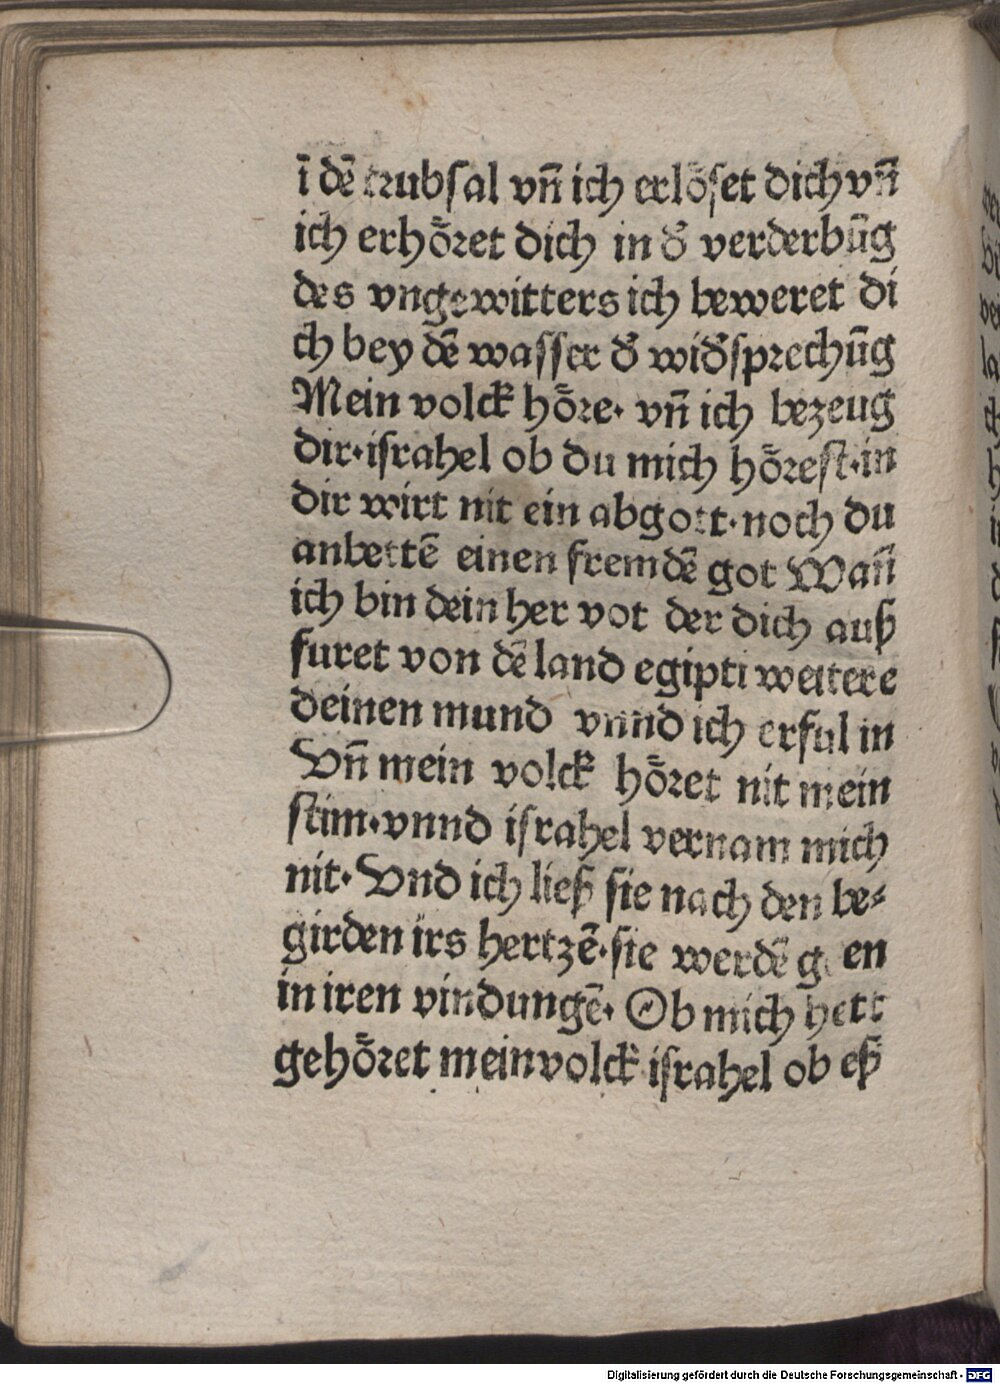 ī dē trubsal vn̄ ich erlöset dich vn̄
ich erhöret dich in d̕ verderbūg
des vngewitters ich beweret di
ch bey dē wasser d̕ wid̕sprechūg
Mein volck höre· vn̄ ich bezeug
dir·israhel ob du mich hörest·in
dir wirt nit ein abgott·noch du
anbettē einen fremdē got Wan̄
ich bin dein her vot der dich auß
furet von dē land egipti weitere
deinen mund vnnd ich erful in
Vn̄ mein volck höret nit mein
stim·vnnd israhel vernam mich
nit· Vnd ich ließ sie nach den be⸗
girden irs hertzē·sie werdē g en
in iren vindungē· Ob mich hett
gehöret mein volck israhel ob eß
Digitalisierung gefördert durch die Deutsche Forschungsgemeinschaft - DFG